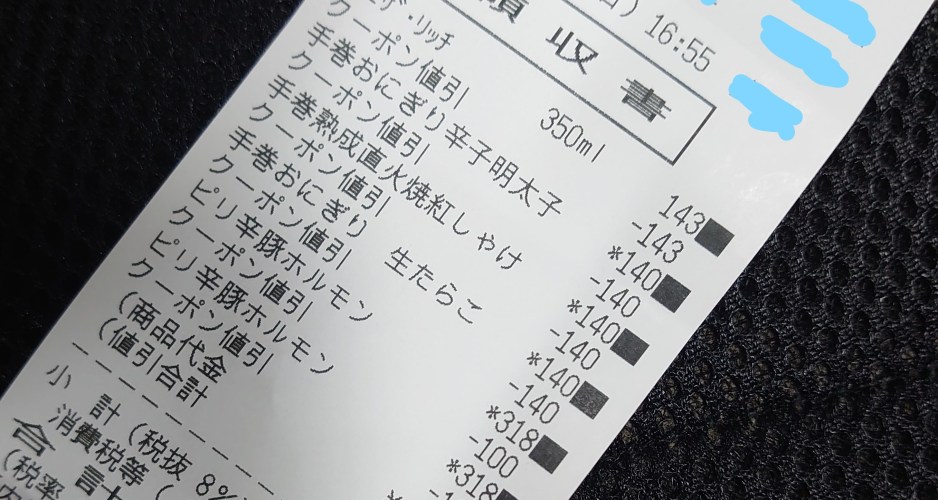 16:55
領収書
ｻﾞ･ﾘｯﾁ 350ml 143■
クーポン値引 -143
手巻おにぎり辛子明太子 *140■
クーポン値引 -140
手巻熟成直火焼紅しゃけ *140■
クーポン値引 -140
手巻おにぎり 生たらこ *140■
クーポン値引 -140
ピリ辛豚ホルモン *318■
クーポン値引 -100
ピリ辛豚ホルモン *318■
クーポン値引
(商品代金
(値引合計
小 計 (税抜 8%
消費税等 (
合 計
(税率